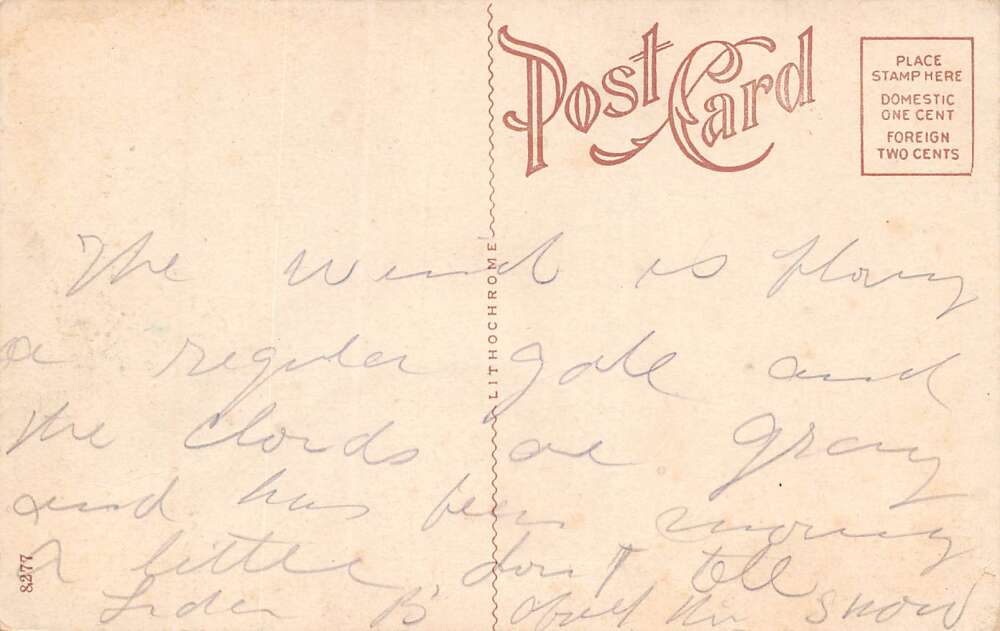 Post Card
PLACE
STAMP HERE
DOMESTIC
ONE CENT
FOREIGN
TWO CENTS
LITHOCHROME
8277
The wind is
a regular gale and
the clouds are gray
and has been snowing
a little, don't tell
B about the snow